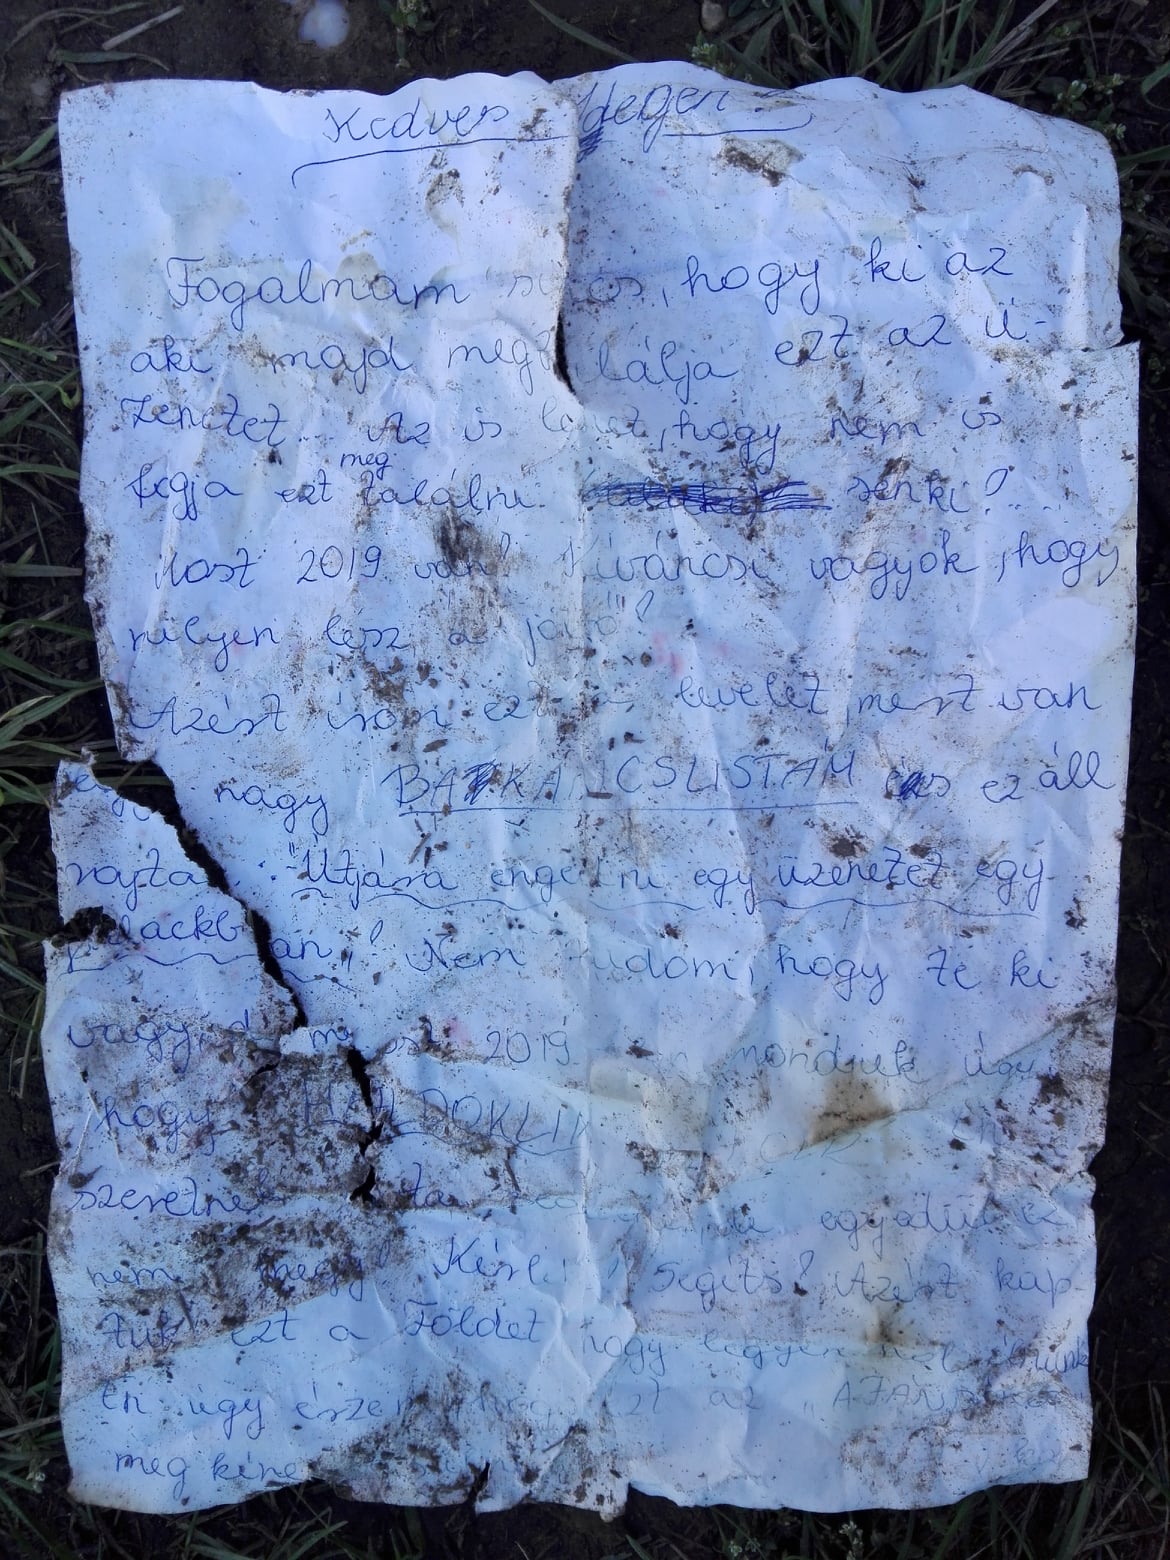 Kedves Idegen!
Fogalmam sincs, hogy ki az
aki majd megtalálja ezt az ü-
zenetet... Az is lehet, hogy nem is
fogja ezt meg találni senki?....
Most 2019 van! Kíváncsi vagyok, hogy
milyen lesz a jövő?
Azért írom ezt a levelet, mert van
egy nagy BAKANCSLISTÁM és ez áll
rajta: "Útjára engedni egy üzenetet egy
palackban"! Nem tudom, hogy te ki
vagy, de most 2019 -ben mondjuk úgy,
hogy HALDOKLIK
szeretnék egyedül ez
nem megy! Kérlek! Segíts! Azért kap-
tuk ezt a Földet hogy legyen hol
én úgy hogy ezt az "AJÁNDÉKOT"
meg kéne